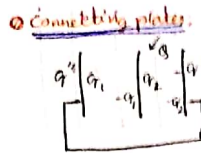 Connecting plates.
Q
q" q₁ -q₁ q₂ q
-q₂